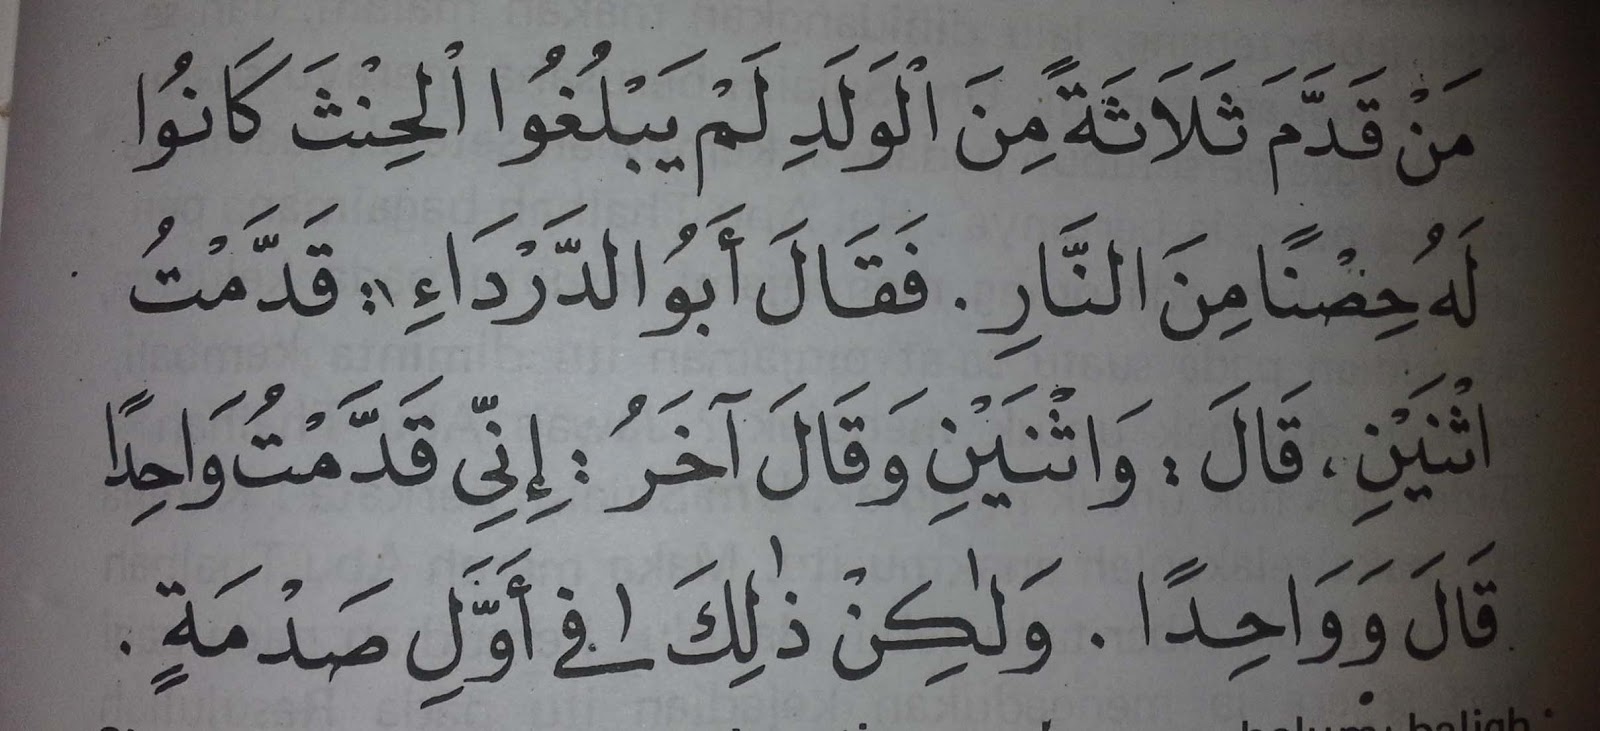 مَنْ قَدَّمَ ثَلَاثَةً مِنَ الْوَلَدِ لَمْ يَبْلُغُوا الْحِنْثَ كَانُوا
لَهُ حِصْنًا مِنَ النَّارِ . فَقَالَ أَبُو الدَّرْدَاءِ : قَدَّمْتُ
اثْنَيْنِ ، قَالَ : وَاثْنَيْنِ وَقَالَ آخَرُ : إِنِّي قَدَّمْتُ وَاحِدًا
قَالَ وَوَاحِدًا . وَلٰكِنْ ذٰلِكَ فِي أَوَّلِ صَدْمَةٍ .
belum baligh